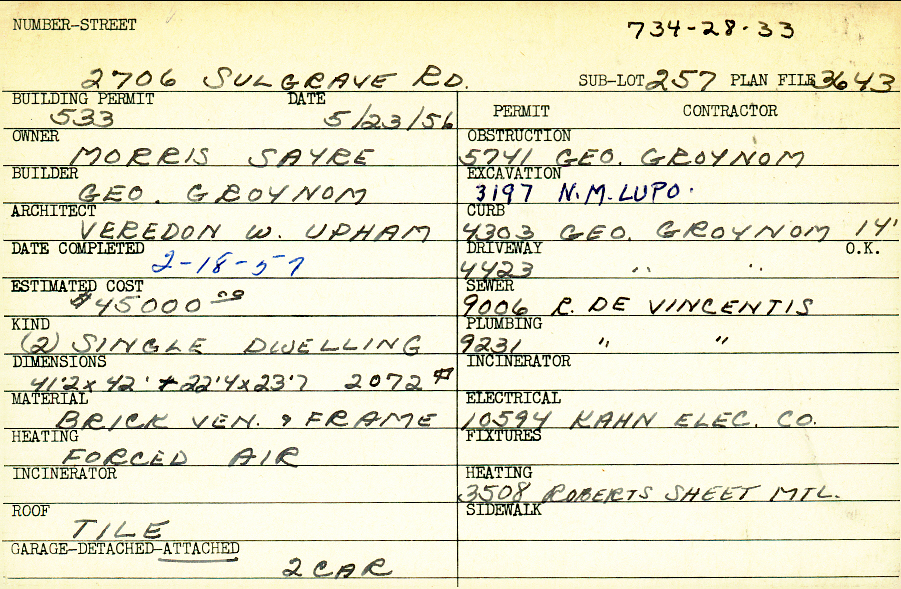 NUMBER-STREET 734-28-33
2706 SULGRAVE RD. SUB-LOT 257 PLAN FILE 3643
BUILDING PERMIT DATE PERMIT CONTRACTOR
533 5/23/56
OWNER OBSTRUCTION
MORRIS SAYRE 5741 GEO. GROYNOM
BUILDER EXCAVATION
GEO. GROYNOM 3197 N.M. LUPO.
ARCHITECT CURB
VEREDON W. UPHAM 4303 GEO. GROYNOM 14'
DATE COMPLETED DRIVEWAY O.K.
2-18-57 4423 " "
ESTIMATED COST SEWER
$45000 00 9006 R. DE VINCENTIS
KIND PLUMBING
(2) SINGLE DWELLING 9231 " "
DIMENSIONS INCINERATOR
41'2 x 42' + 22'4 x 23'7 2072 #
MATERIAL ELECTRICAL
BRICK VEN. & FRAME 10594 KAHN ELEC. CO.
HEATING FIXTURES
FORCED AIR
INCINERATOR HEATING
3508 ROBERTS SHEET MTL.
ROOF SIDEWALK
TILE
GARAGE-DETACHED-ATTACHED
2 CAR